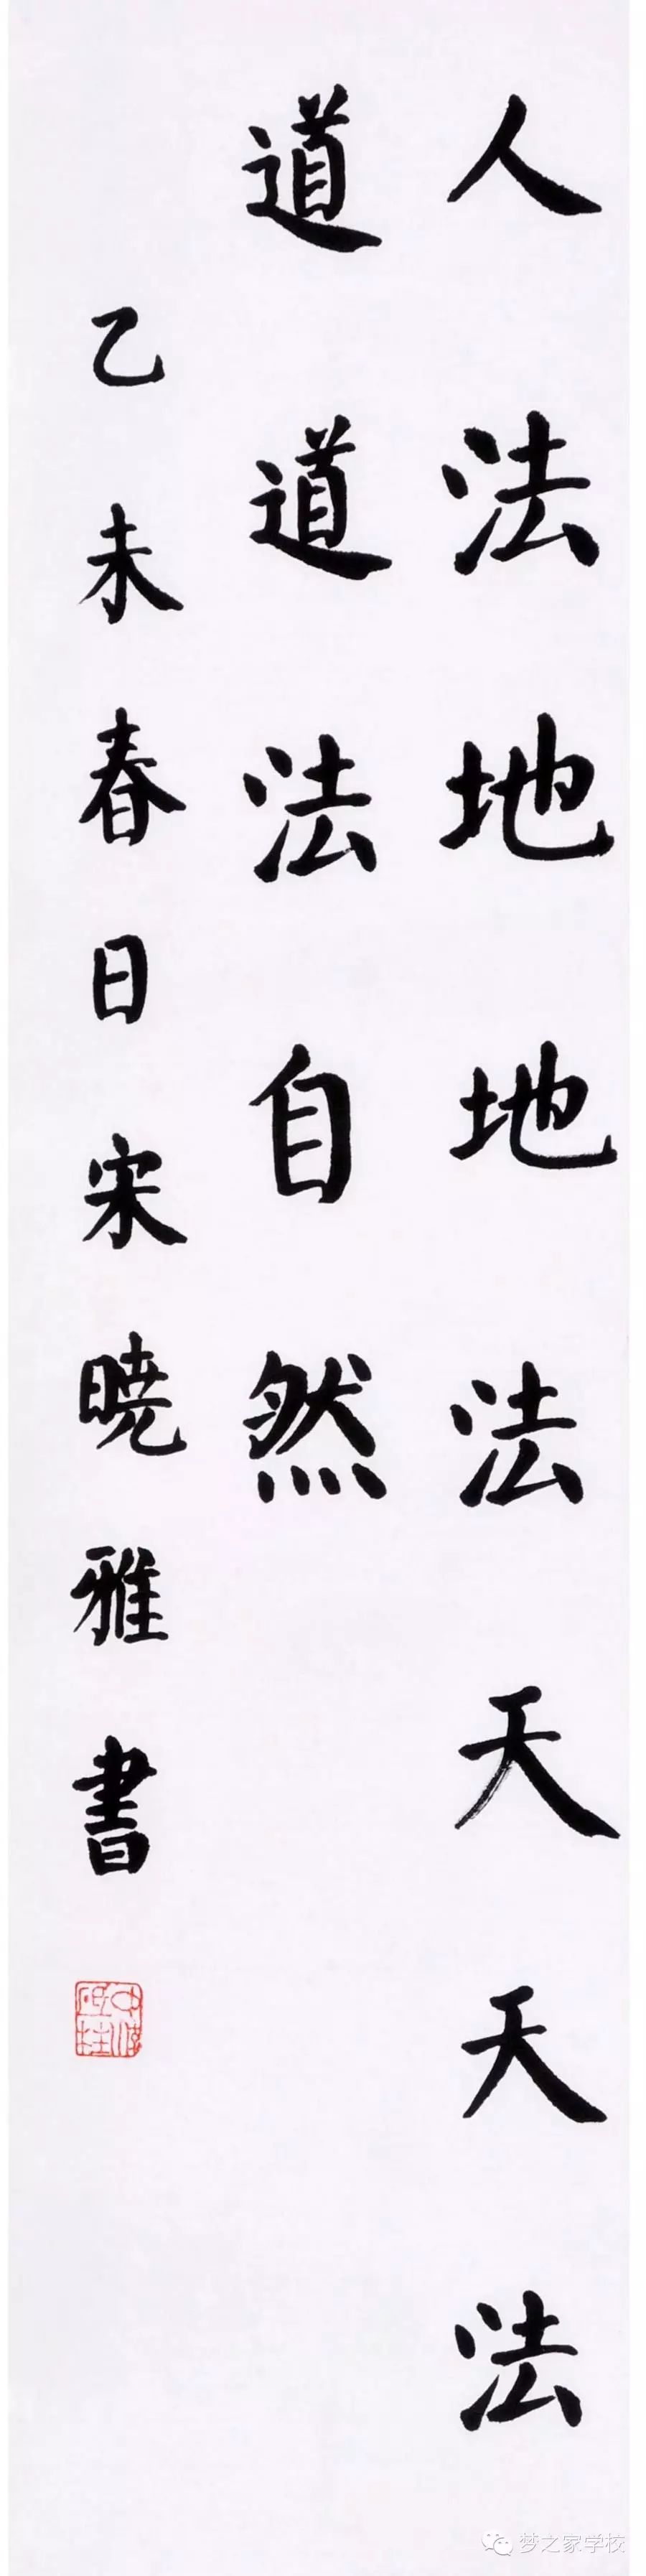 人法地地法天天法
道道法自然
乙未春日宋曉雅書
梦之家学校